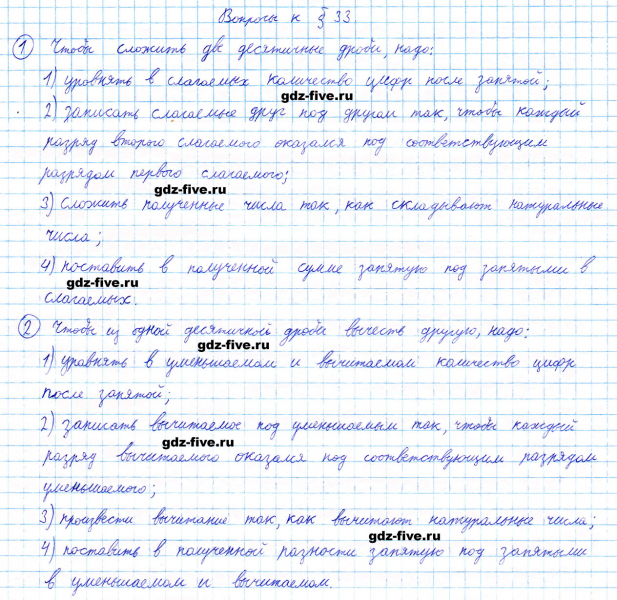 Вопросы к § 33.
1 Чтобы сложить две десятичные дроби, надо:
1) уровнять в слагаемых количество цифр после запятой;
gdz-five.ru
2) записать слагаемые друг под другом так, чтобы каждый
разряд второго слагаемого оказался под соответствующим
разрядом первого слагаемого;
gdz-five.ru
3) сложить полученные числа так, как складывают натуральные
числа;
4) поставить в полученной сумме запятую под запятыми в
gdz-five.ru
слагаемых.
2 Чтобы из одной десятичной дроби вычесть другую, надо:
gdz-five.ru
1) уравнять в уменьшаемом и вычитаемом количество цифр
после запятой;
2) записать вычитаемое под уменьшаемым так, чтобы каждый
gdz-five.ru
разряд вычитаемого оказался под соответствующим разрядом
уменьшаемого;
gdz-five.ru
3) произвести вычитание так, как вычитают натуральные числа;
gdz-five.ru
4) поставить в полученной разности запятую под запятыми
в уменьшаемом и вычитаемом.
gdz-five.ru